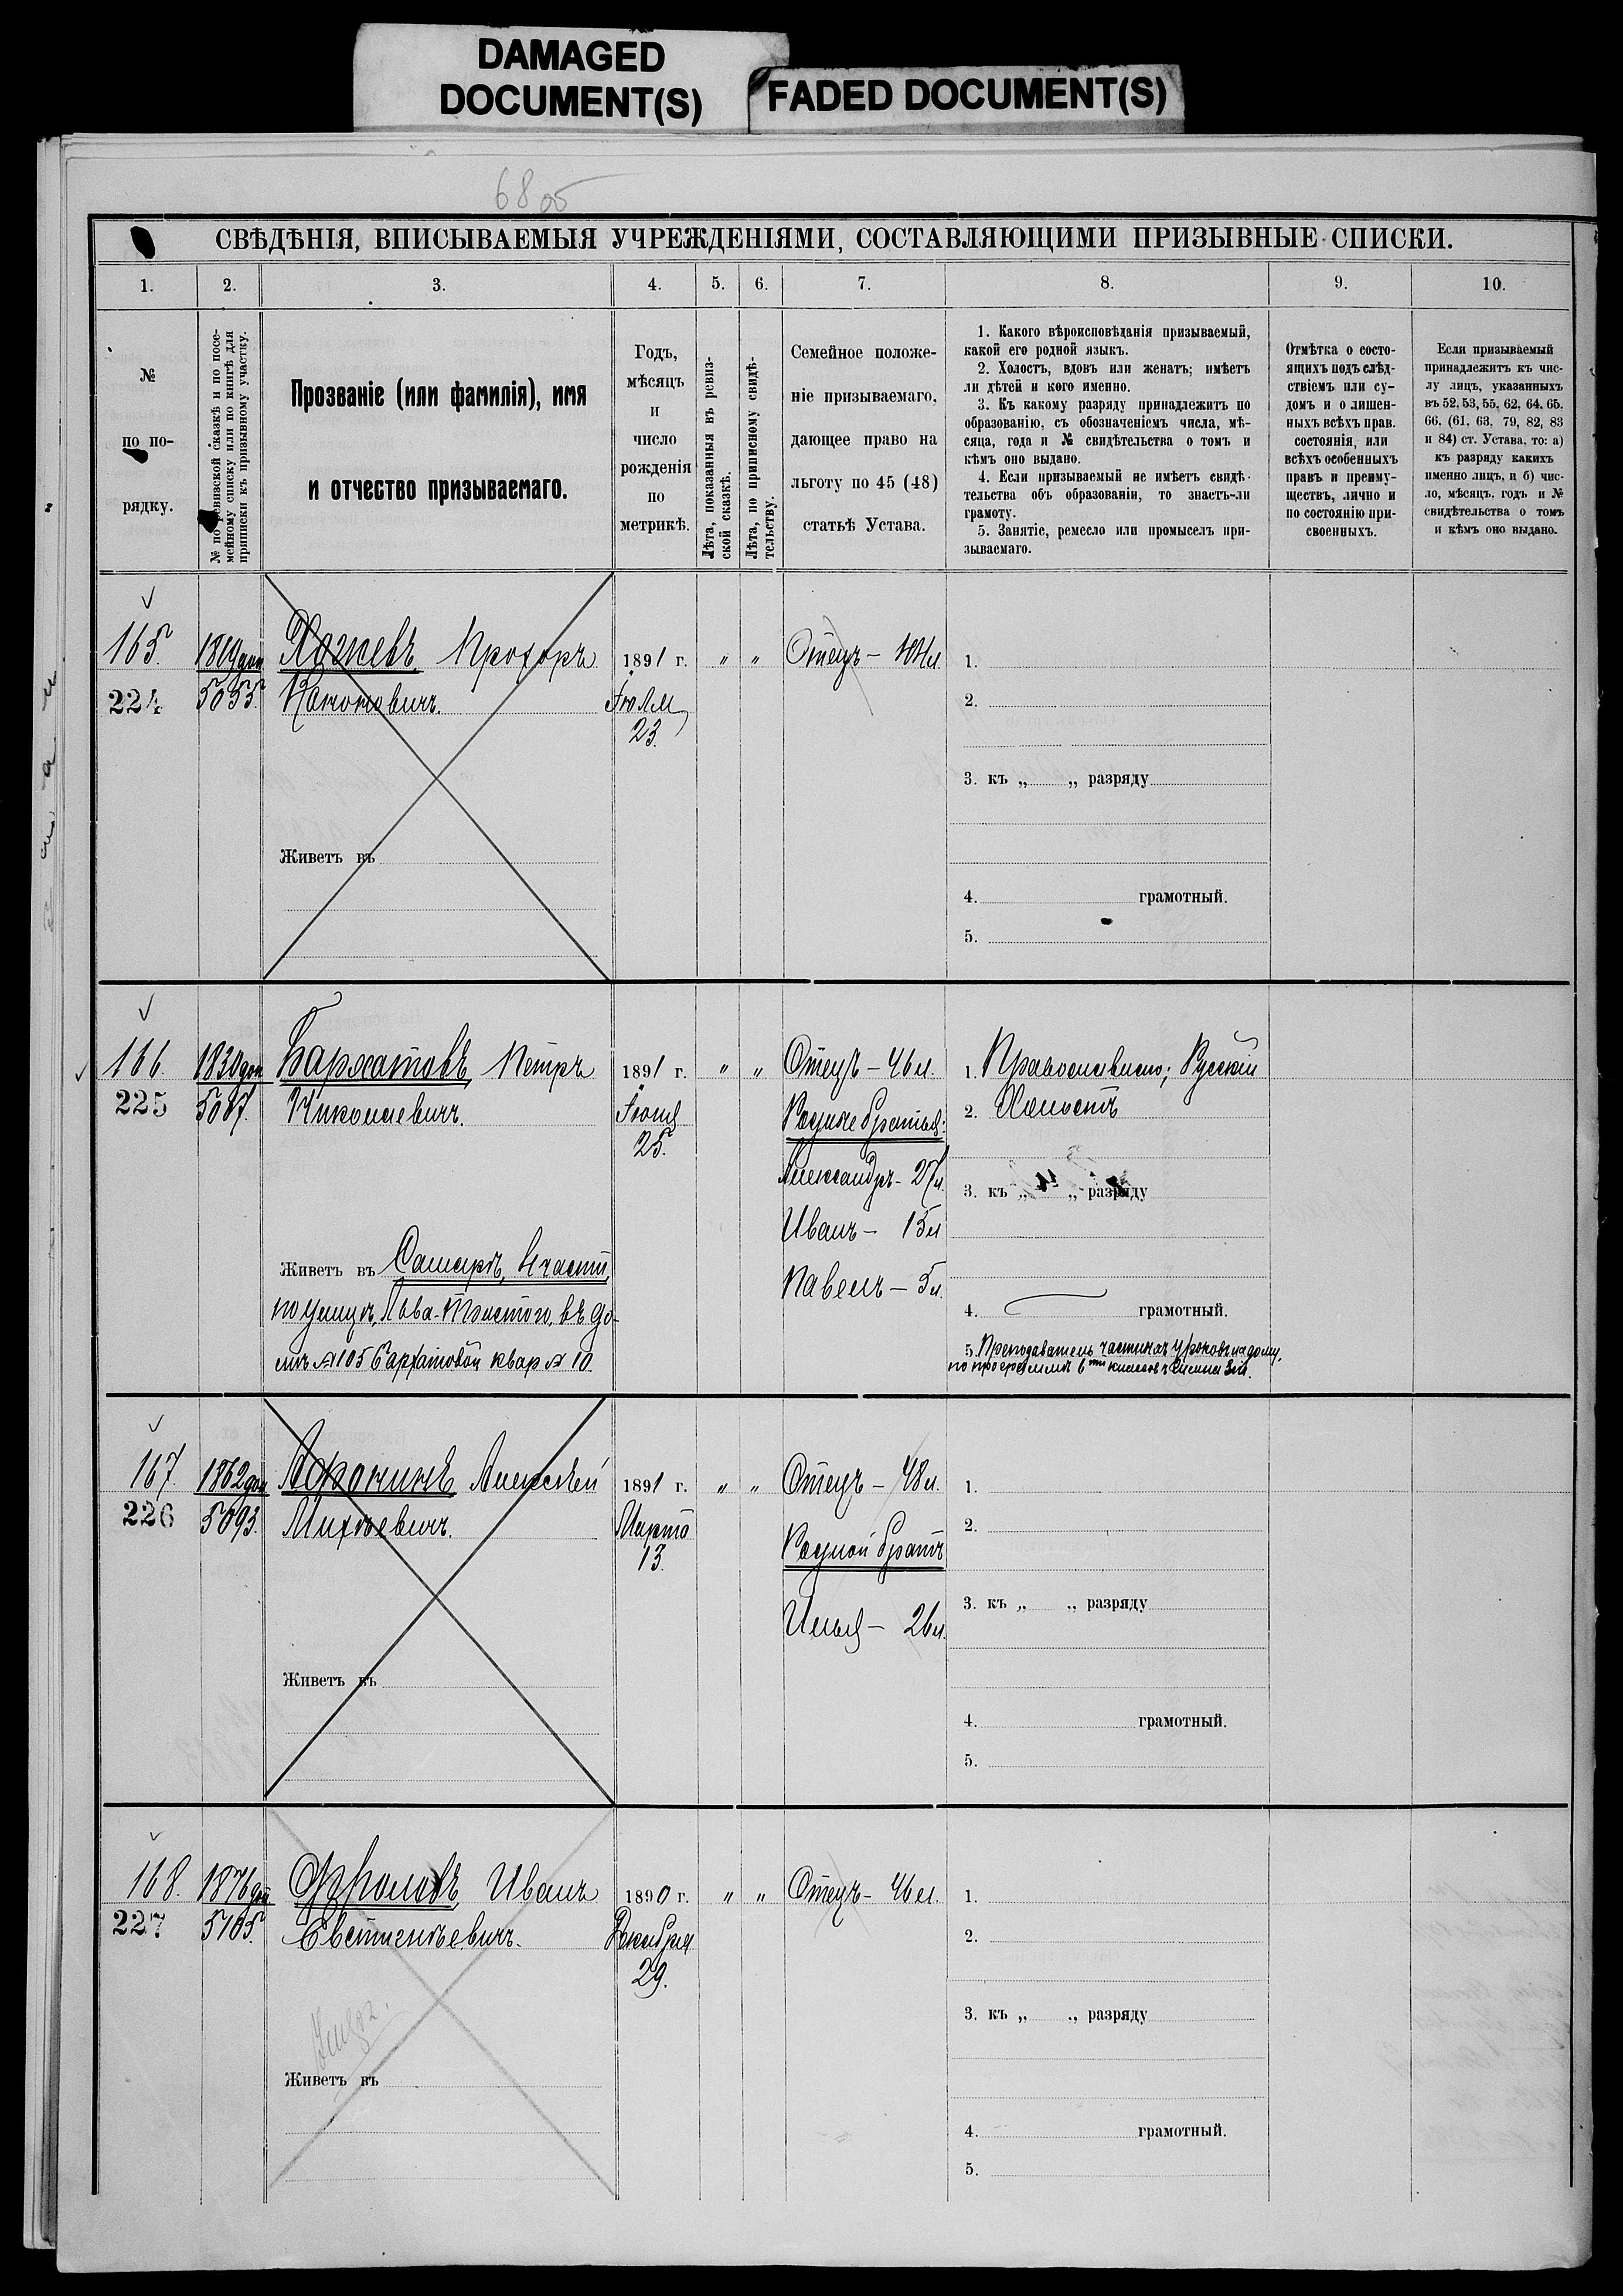 DAMAGED
DOCUMENT(S)
FADED DOCUMENT(S)
68 об
СВѢДѢНІЯ, ВПИСЫВАЕМЫЯ УЧРЕЖДЕНІЯМИ, СОСТАВЛЯЮЩИМИ ПРИЗЫВНЫЕ СПИСКИ.
1. 2. 3. 4. 5. 6. 7. 8. 9. 10.
№
по по-
рядку.
№ по ревизской сказкѣ и по посе-
мейному списку или по книгѣ для
приписки къ призывному участку.
Прозваніе (или фамилія), имя
и отчество призываемаго.
Годъ,
мѣсяцъ
и
число
рожденія
по
метрикѣ.
Лѣта, показанныя въ ревиз-
ской сказкѣ.
Лѣта, по приписному свидѣ-
тельству.
Семейное положе-
ніе призываемаго,
дающее право на
льготу по 45 (48)
статьѣ Устава.
1. Какого вѣроисповѣданія призываемый,
какой его родной языкъ.
2. Холостъ, вдовъ или женатъ; имѣетъ
ли дѣтей и кого именно.
3. Къ какому разряду принадлежитъ по
образованію, съ обозначеніемъ числа, мѣ-
сяца, года и № свидѣтельства о томъ и
кѣмъ оно выдано.
4. Если призываемый не имѣетъ свидѣ-
тельства объ образованіи, то знаетъ-ли
грамоту.
5. Занятіе, ремесло или промыселъ при-
зываемаго.
Отмѣтка о состо-
ящихъ подъ слѣд-
ствіемъ или су-
домъ и о лишен-
ныхъ всѣхъ прав.
состоянія, или
всѣхъ особенныхъ
правъ и преиму-
ществъ, лично и
по состоянію при-
своенныхъ.
Если призываемый
принадлежитъ къ чис-
лу лицъ, указанныхъ
въ 52, 53, 55, 62, 64, 65,
66, (61, 63, 79, 82, 83
и 84) ст. Устава, то: а)
къ разряду какихъ
именно лицъ, и б) чис-
ло, мѣсяцъ, годъ и №
свидѣтельства о томъ
и кѣмъ оно выдано.
165.
224
5055.
Прохоръ
Кононовичъ.
1891 г.
Іюля
23.
" "
Отецъ – 44 л
1.
2.
3. къ „ „ разряду
4. грамотный.
5.
Живетъ въ
166.
225
1830 доп
5087.
Бархатовъ, Петръ
Николаевичъ.
1891 г.
Іюня
25.
" "
Отецъ – 46 л.
Родные братья:
Александръ – 27 л.
Иванъ – 15 л
Павелъ – 5 л.
1. Православнаго; Русскій
2. Холостъ
3. къ „ „ разряду
4. грамотный.
5. Преподаватель частныхъ уроковъ на дому,
по программѣ 6ти классовъ
Живетъ въ Самарѣ, 4 части,
по улицѣ, Льва-Толстого, въ до-
мѣ №105 квар № 10
167.
226
1862 доп
5093.
Афонинъ Алексѣй
1891 г.
Марта
13.
" "
Отецъ – 48 л.
Родной братъ
Илья – 26 л.
1.
2.
3. къ „ „ разряду
4. грамотный.
5.
Живетъ въ
168.
227
1876 доп
5105.
Фроловъ, Иванъ
Евстигнѣевичъ.
1890 г.
Декабря
29.
" "
Отецъ – 46 л.
1.
2.
3. къ „ „ разряду
4. грамотный.
5.
Живетъ въ